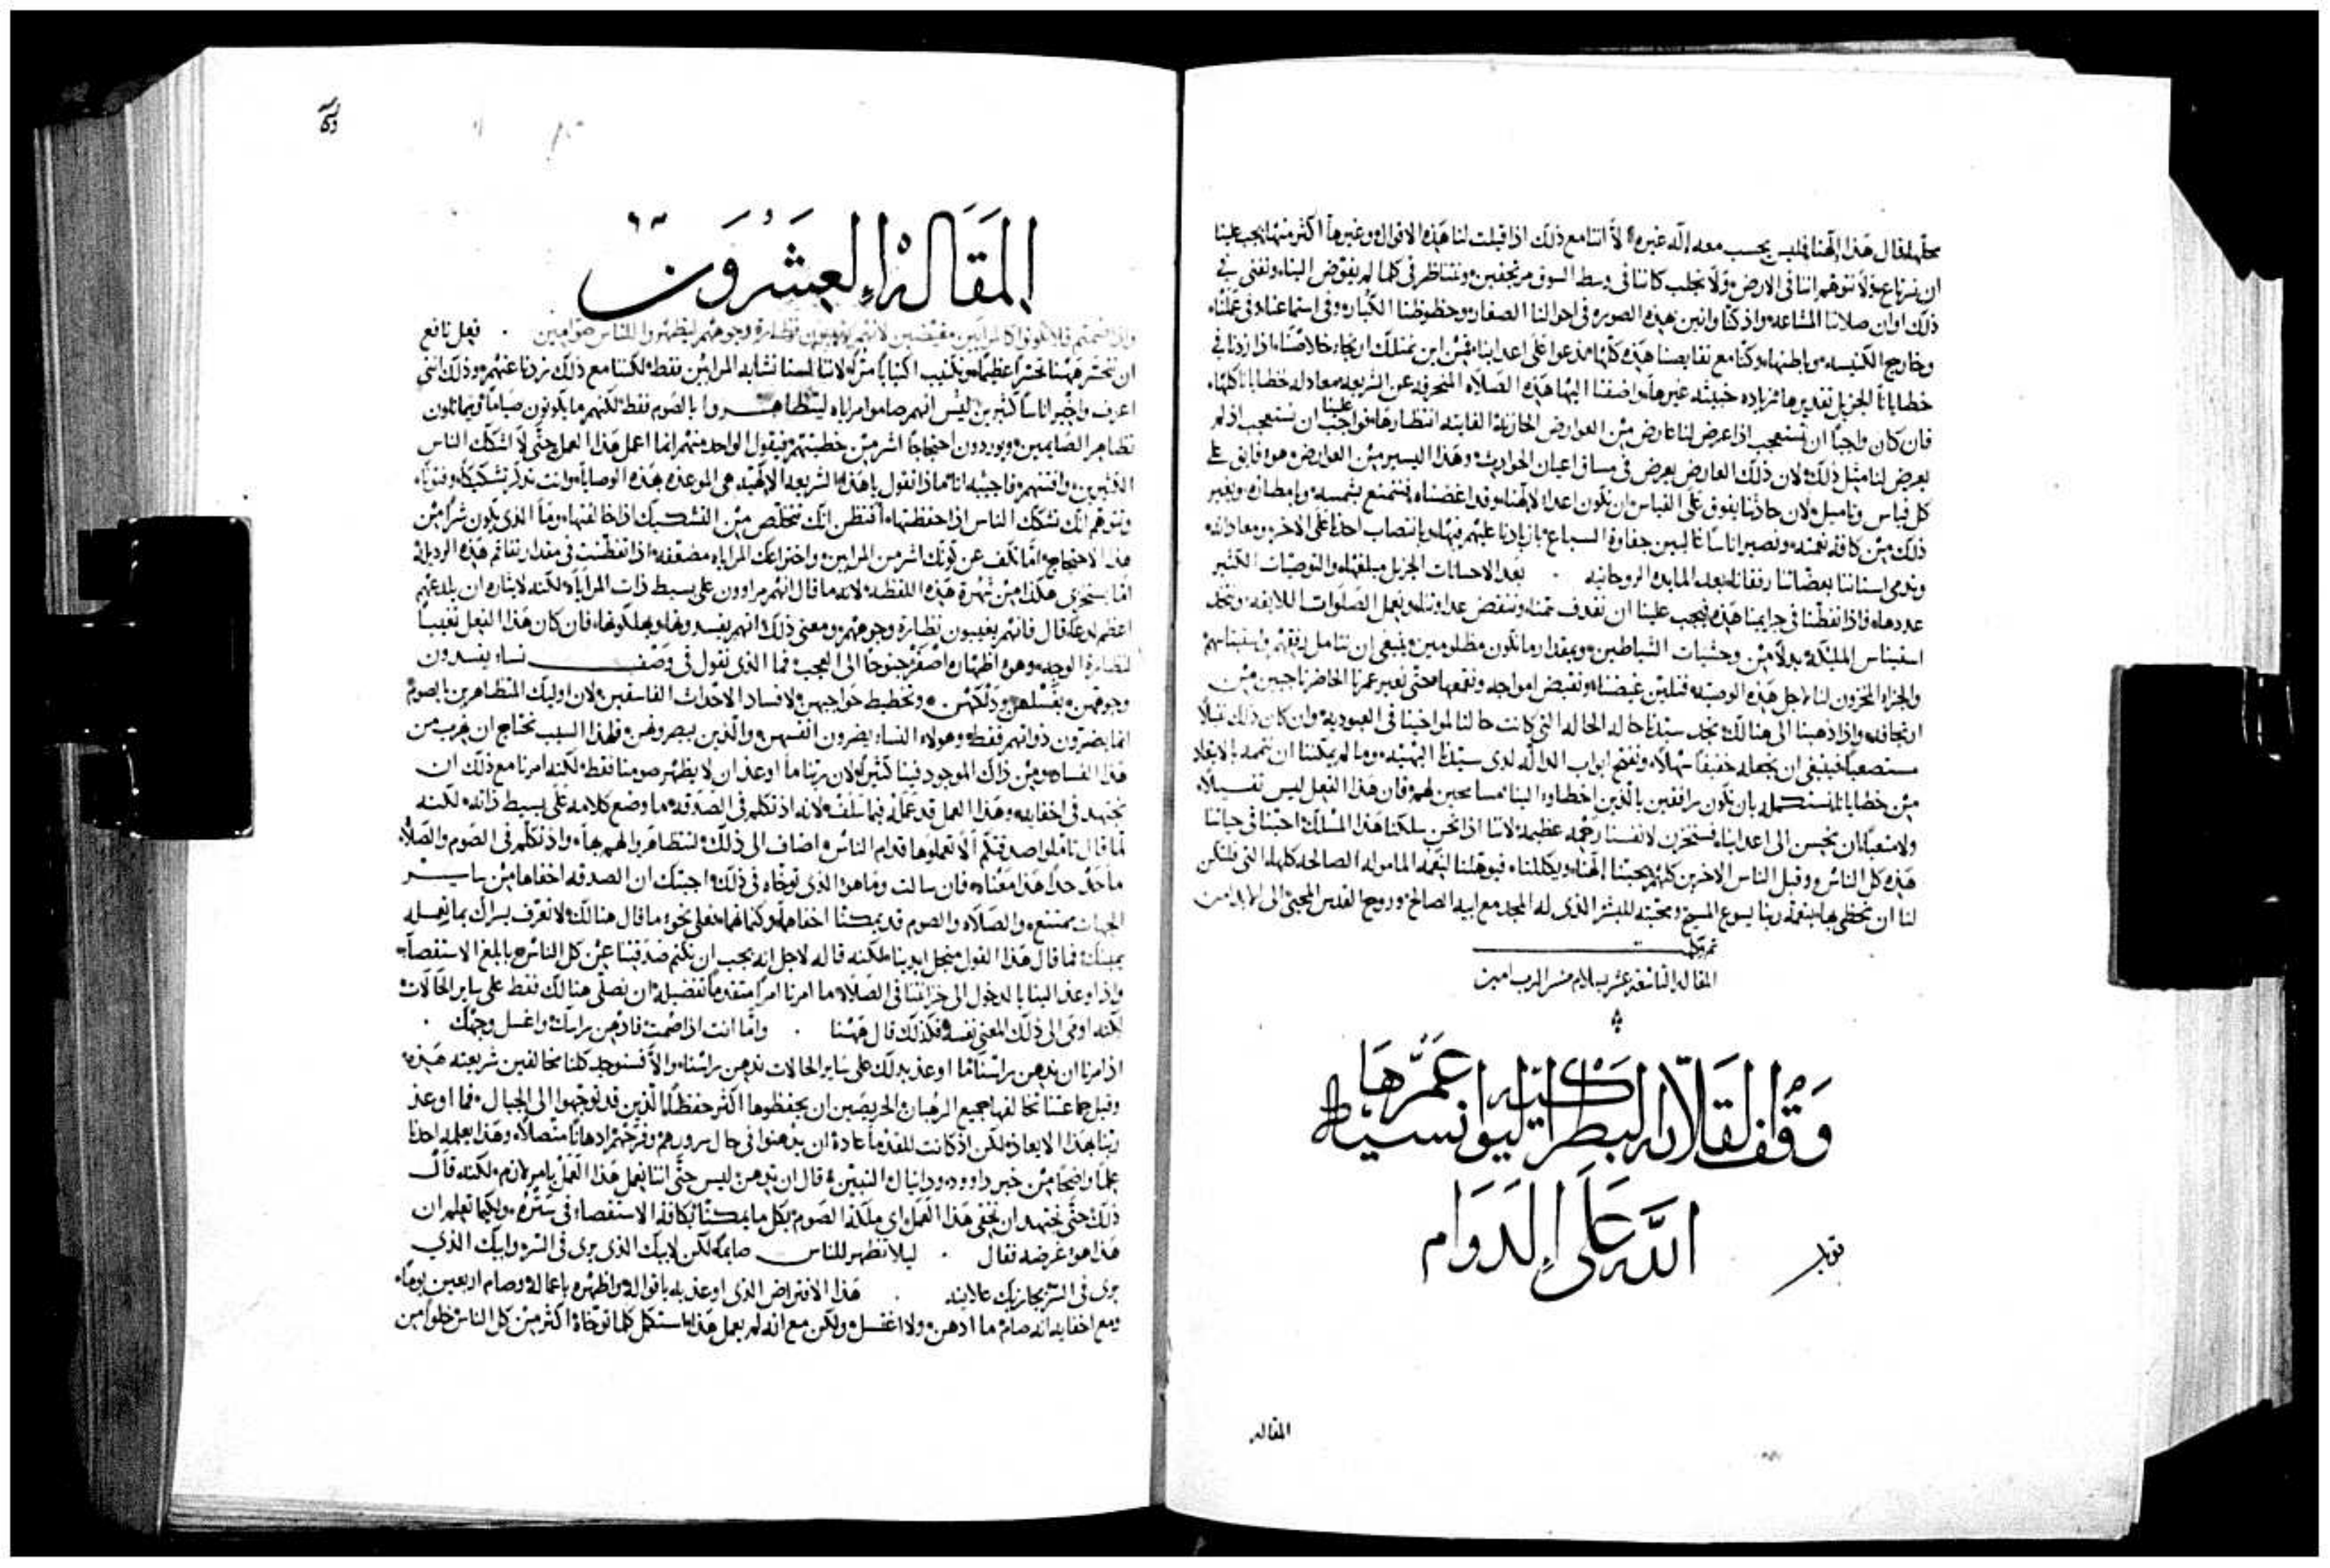 محلها فقال هذا الهنا فليس يحسب معه اله غيره الا اننا مع ذلك اذا قيلت لنا هذه الاقوال وغيرها اكثر منها يجب علينا
ان نرتاع ولا نتوهم اننا في الارض ولا نجلب كاننا في وسط السوق مرتجفين ونتناظر في كلما لم يفوض الينا ونفني في
ذلك اوان صلاتنا المشاعه واذ كنا وانين بهذه الصوره في احوالنا الصغار وحظوظنا الكبار وفي استماعنا وفي عملنا
وخارج الكنيسه وباطنها وكنا مع نقايصنا هذه كلها ندعوا على اعداينا فمن اين نمتلك ارتجاء خلاصنا اذا زدنا في
خطايانا الجزيل تقديرها زياده خبيثه غيرها واضفنا اليها هذه الصلاه المنحرفه عن الشريعه معادله خطايانا كلها
فان كان واجبا ان نستعجب اذا عرض لنا عارض من العوارض الحازبة الفايته انتظارها فواجب علينا ان نستعجب اذ لم
يعرض لنا مثل ذلك لان ذلك العارض يعرض في مساق اعيان الحوادث وهذا اليسير من العوارض هو فايق على
كل قياس وتاميل لان حادثا يفوق على القياس ان نكون اعداء لالهنا وقد اغضبناه فنتمتع بشمسه وبامطاره وبغير
ذلك من كافة نعمته ونصير اناسا غالبين جفاوة السباع بازيادنا عليهم فيها وبانتصاب احدنا على الاخر ومعاداته
وندمي اسناننا بعضاتنا رفقانا بعد المايده الروحانيه . بعد الاحسانات الجزيل مبلغها والتوصيات الكثير
عددها فاذا تفطنا في جرايمنا هذه فيجب علينا ان نقذف حمتنا وننقض عداوتنا ونعمل الصلوات اللايقه ونتخذ
استيناس المليكة بدلا من وحشيات الشياطين وبمقدار ما نكون مظلومين ينبغي ان نتامل
والجزاء المخزون لنا لاجل هذه الوصيه فنلين غيضنا ونقبض امواجه ونقمعها حتى نعبر عمرنا الحاضر ناجين من
ارتجافه واذا ذهبنا الى هنالك نجد سيدنا حاله الحاله التي كانت حالنا لمواخينا في العبودية وان كان ذلك ثقيلا
مستصعبا فينبغي ان نجعله خفيفا سهلا ونفتح ابواب الداله لدى سيدنا البهيه وما لم يمكننا ان نتممه بالابعاد
من خطايانا نستكمله بان نكون رافقين بالذين اخطاوا الينا مسامحين لهم فان هذا الفعل ليس ثقيلا
ولا متعبا ان نحسن الى اعداينا فسنخزن لانفسنا رحمه عظيمه لاننا اذا نحن سلكنا هذا المسلك احبنا في حياتنا
هذه كل الناس وقبل الناس الاخرين كلهم يحبنا الهنا ويكللنا فيوهلنا النعم المامولة الصالحه كلها التي فليكن
لنا ان نحظى بها بنعمة ربنا يسوع المسيح ومحبته للبشر الذي له المجد مع ابيه الصالح وروح القدس المحيي الى الابد امين
تم وكمل
المقاله التاسعة عشر بسلام من الرب امين
وقف القلايه البطركيه عمرها
الله على الدوام
قوبل
المقاله
المقالة العشرون
واذا صمتم فلا تكونوا كالمرايين مقبضين لانهم يغيبون نظارة وجوههم ليظهروا للناس صوامين . فعل نافع
ان نتحسر ههنا تحسرا عظيما ونكتيب اكتيابا مرا لاننا لسنا نشابه المرايين فقط لكننا مع ذلك نزدنا عنهم وذلك انني
اعرف واخبر اناسا كثيرين ليس انهم صاموا مراياه ليتظاهروا بالصوم فقط لكنهم ما يكونون صياما ويماثلون
تظاهر الصايمين ويوردون احتجاجا اشر من خطيتهم فيقول الواحد منهم انما اعمل هذا العمل حتى لا اشكك الناس
الكثيرين وافتنهم فاجيبه انا ماذا تقول يا هذا الشريعه الالهيه هي الموعزه بهذه الوصايا وانت تذكر تشكيكا وفتونا
وتتوهم انك تشكك الناس اذا حفظتها افتظن انك تتخلص من التشكيك اذا خالفتها وما الذي يكون شرا من
هذا الاحتجاج اما تكف عن كونك اشر من المرايين واختراعك المراياه مضعفه اذا تفطنت في مقدار تفاقم هذه الرديلة
اما تستخزي هكذا من شهرة هذه اللفظه لانه ما قال انهم مراوون على بسيط ذات المراياه لكنه لايثاره ان يلدعهم
اعظم لدعا قال فانهم يغيبون نظارة وجوههم ومعنى ذلك انهم يفسدونها ويهلكونها فان كان هذا الفعل تغييبا
لنضارة الوجه وهو اظهاره اصفر جنوحا الى العجب فما الذي نقول في وصف نساء يفسدون
وجوههن بغسلهن ودلكهن وتخطيط حواجبهن لافساد الاحداث الفاسقين لان اوليك المتظاهرين بالصوم
انما يضرون ذواتهم فقط وهولاء النساء يضرون انفسهن والذين يبصروهن فلهذا السبب نحتاج ان نهرب من
هذا الفساد ومن ذاك الموجود فينا كثيرا لان ربنا ما اوعز ان لا يظهر صومنا فقط لكنه امرنا مع ذلك ان
نجتهد في اخفايه وهذا العمل قد عمله فيما سلف لانه اذ تكلم في الصدقه ما وضع كلامه على بسيط ذاته لكنه
لما قال تاملوا صدقتكم الا تعملوها قدام الناس اضاف الى ذلك لتتظاهروا لهم بها واذ تكلم في الصوم والصلاه
ما حد حدا هذا معناه فان سالت وما هو الذي توخاه في ذلك اجبتك ان الصدقه اخفاها من ساير
الجهات ممتنع والصلاه والصوم قد يمكننا اخفاهما وكتمانهما فعلى نحو ما قال هنالك لا تعرف يسراك بما تعمله
يمينك فما قال هذا القول من اجل ايدينا لكنه قاله لاجل انه يجب ان نكتم صدقتنا عن كل الناس بابلغ الاستقصاء
واذ اوعز الينا بالدخول الى خزانتنا في الصلاة ما امرنا امرا متقدما تفضيله ان نصلي هنالك فقط على ساير الحالات
لكنه اومى الى ذلك المعنى نفسه فكذلك قال ههنا . واما انت اذا صمت فادهن براسك واغسل وجهك .
اذ امرنا ان ندهن براسنا ما اوعز بذلك على ساير الحالات ندهن براسنا والا فسنوجد كلنا مخالفين شريعته هذه
وقبل جماعتنا تخالفها جميع الرهبان الحريصين ان يحفظوها اكثر حفظا الذين قد توجهوا الى الجبال فما اوعز
ربنا هذا الايعاز لكن اذ كانت للقدما عادة ان يدهنوا في حال سرورهم وفرحتهم ادهانا متصلا وهذا يعلمه احدنا
علما واضحا من خبر داوود ودانيال النبيين قال ان يدهن ليس حتى اننا نعمل هذا العمل بامر لازم لكنه قال
ذلك حتى نجتهد ان نخفي هذا العمل اي ملكة الصوم بكل ما يمكننا بكافة الاستقصاء في ستره ولكيما تعلم ان
هذا هو غرضه فقال . ليلا تظهر للناس صايما لكن لابيك الذي يرى في السر وابيك الذي
يرى في السر يجازيك علانيه . هذا الافتراض الذي اوعز به باقواله واظهره باعماله وصام اربعين يوما
ومع اخفايه انه صام ما ادهن ولا اغتسل ولكن مع انه لم يعمل هذا استكمل كلما توخاه اكثر من كل الناس خلوا من